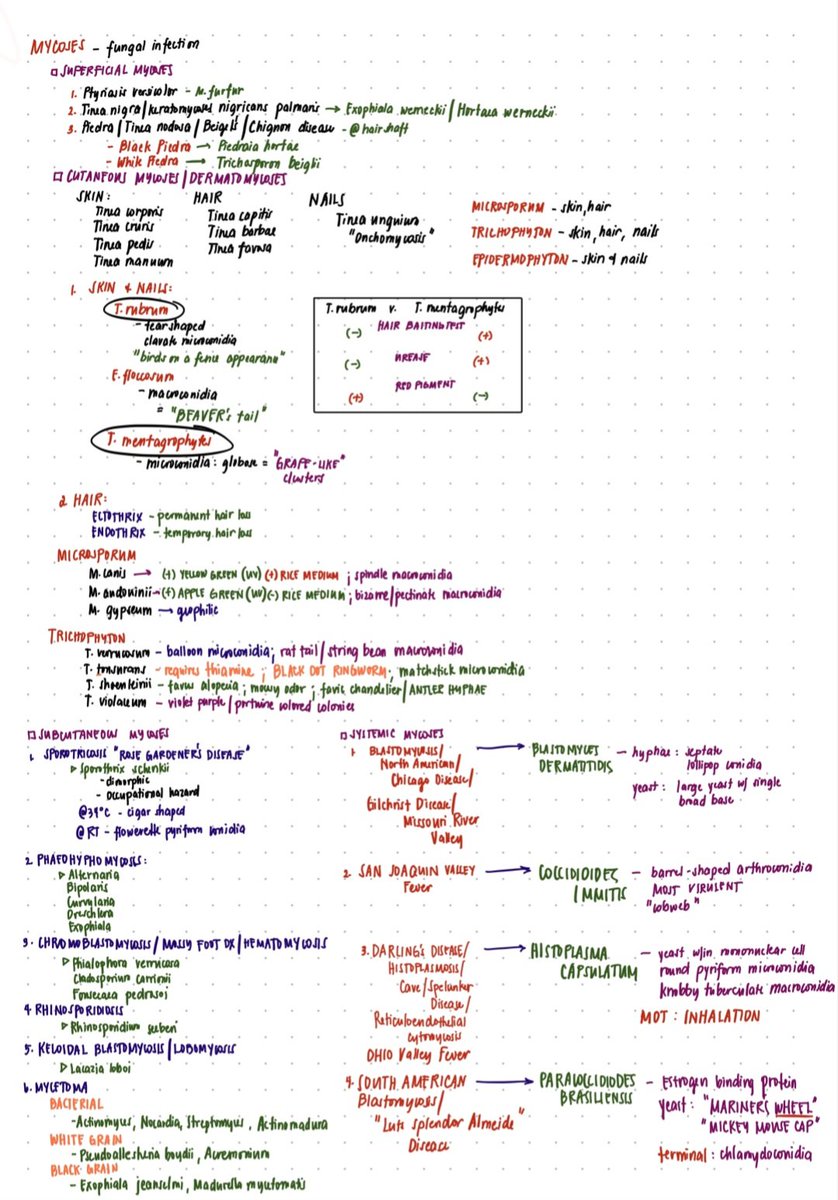 MYCOSES - fungal infection
□ SUPERFICIAL MYCOSES
1. Ptyriasis versicolor - M. furfur
2. Tinea nigra/keratomycoses nigricans palmaris → Exophiala werneckii / Hortaea werneckii
3. Piedra / Tinea nodosa / Beigel's / Chignon disease - @ hair shaft
- Black Piedra → Piedraia hortae
- White Piedra → Trichosporon beiglii
□ CUTANEOUS MYCOSES / DERMATOMYCOSES
SKIN:
Tinea corporis
Tinea cruris
Tinea pedis
Tinea manuum
HAIR
Tinea capitis
Tinea barbae
Tinea favosa
NAILS
Tinea unguium
"Onchomycosis"
MICROSPORUM - skin, hair
TRICHOPHYTON - skin, hair, nails
EPIDERMOPHYTON - skin & nails
1. SKIN & NAILS:
T. rubrum
- tear shaped
clavate microconidia
"birds on a fence appearance"
E. floccosum
- macroconidia
= "BEAVER's tail"
T. mentagrophytes
- microconidia : globose = "GRAPE-LIKE"
clusters
T. rubrum v. T. mentagrophytes
(-) HAIR BAITING TEST (+)
(-) UREASE (+)
(+) RED PIGMENT (-)
2 HAIR:
ECTOTHRIX - permanent hair loss
ENDOTHRIX - temporary hair loss
MICROSPORUM
M. canis → (+) YELLOW GREEN (UV) (+) RICE MEDIUM ; spindle macroconidia
M. audouinii - (+) APPLE GREEN (UV) (-) RICE MEDIUM ; bizarre/pectinate macroconidia
M. gypseum → geophilic
TRICHOPHYTON
T. verrucosum - balloon microconidia; rat tail / string bean macroconidia
T. tonsurans - requires thiamine ; BLACK DOT RINGWORM ; matchstick microconidia
T. shoenleinii - favus alopecia ; mousy odor ; favic chandelier / ANTLER HYPHAE
T. violaceum - violet purple / portwine colored colonies
□ SUBCUTANEOUS MYCOSES
1. SPOROTRICOSIS "ROSE GARDENER'S DISEASE"
▹ Sporothrix schenkii
- dimorphic
- occupational hazard
@ 37°C - cigar shaped
@ RT - flowerette pyriform conidia
2. PHAEOHYPHOMYCOSIS:
▹ Alternaria
Bipolaris
Curvularia
Dreschlera
Exophiala
3. CHROMOBLASTOMYCOSIS / MASSY FOOT DX / HEMATOMYCOSIS
▹ Phialophora verrucosa
Cladosporium carrionii
Fonsecaea pedrosoi
4 RHINOSPORIDIOSIS
▹ Rhinosporidium seeberi
5. KELOIDAL BLASTOMYCOSIS / LOBOMYCOSIS
▹ Lacazia loboi
6. MYCETOMA
BACTERIAL
- Actinomyces, Nocardia, Streptomyces, Actinomadura
WHITE GRAIN
- Pseudoallesheria boydii, Acremonium
BLACK GRAIN
- Exophiala jeanselmi, Madurella mycetomatis
□ SYSTEMIC MYCOSES
1. BLASTOMYCOSIS/
North American/
Chicago Disease/
Gilchrist Disease/
Missouri River
Valley
→ BLASTOMYCES
DERMATITIDIS
- hyphae : septate
lollipop conidia
yeast : large yeast w/ single
broad base
2 SAN JOAQUIN VALLEY
Fever
→ COCCIDIOIDES
IMMITIS
- barrel-shaped arthroconidia
MOST VIRULENT
"cobweb"
3. DARLING'S DISEASE/
HISTOPLASMOSIS/
Cave/Spelunker
Disease/
Reticuloendothelial
cytomycosis
OHIO Valley Fever
→ HISTOPLASMA
CAPSULATUM
- yeast w/in mononuclear cell
round pyriform microconidia
knobby tuberculate macroconidia
MOT : INHALATION
4. SOUTH AMERICAN
Blastomycosis/
"Lutz Splendor Almeide"
Disease
→ PARACOCCIDIODES
BRASILIENSIS
- Estrogen binding protein
yeast : "MARINER'S WHEEL"
"MICKEY MOUSE CAP"
terminal : chlamydoconidia